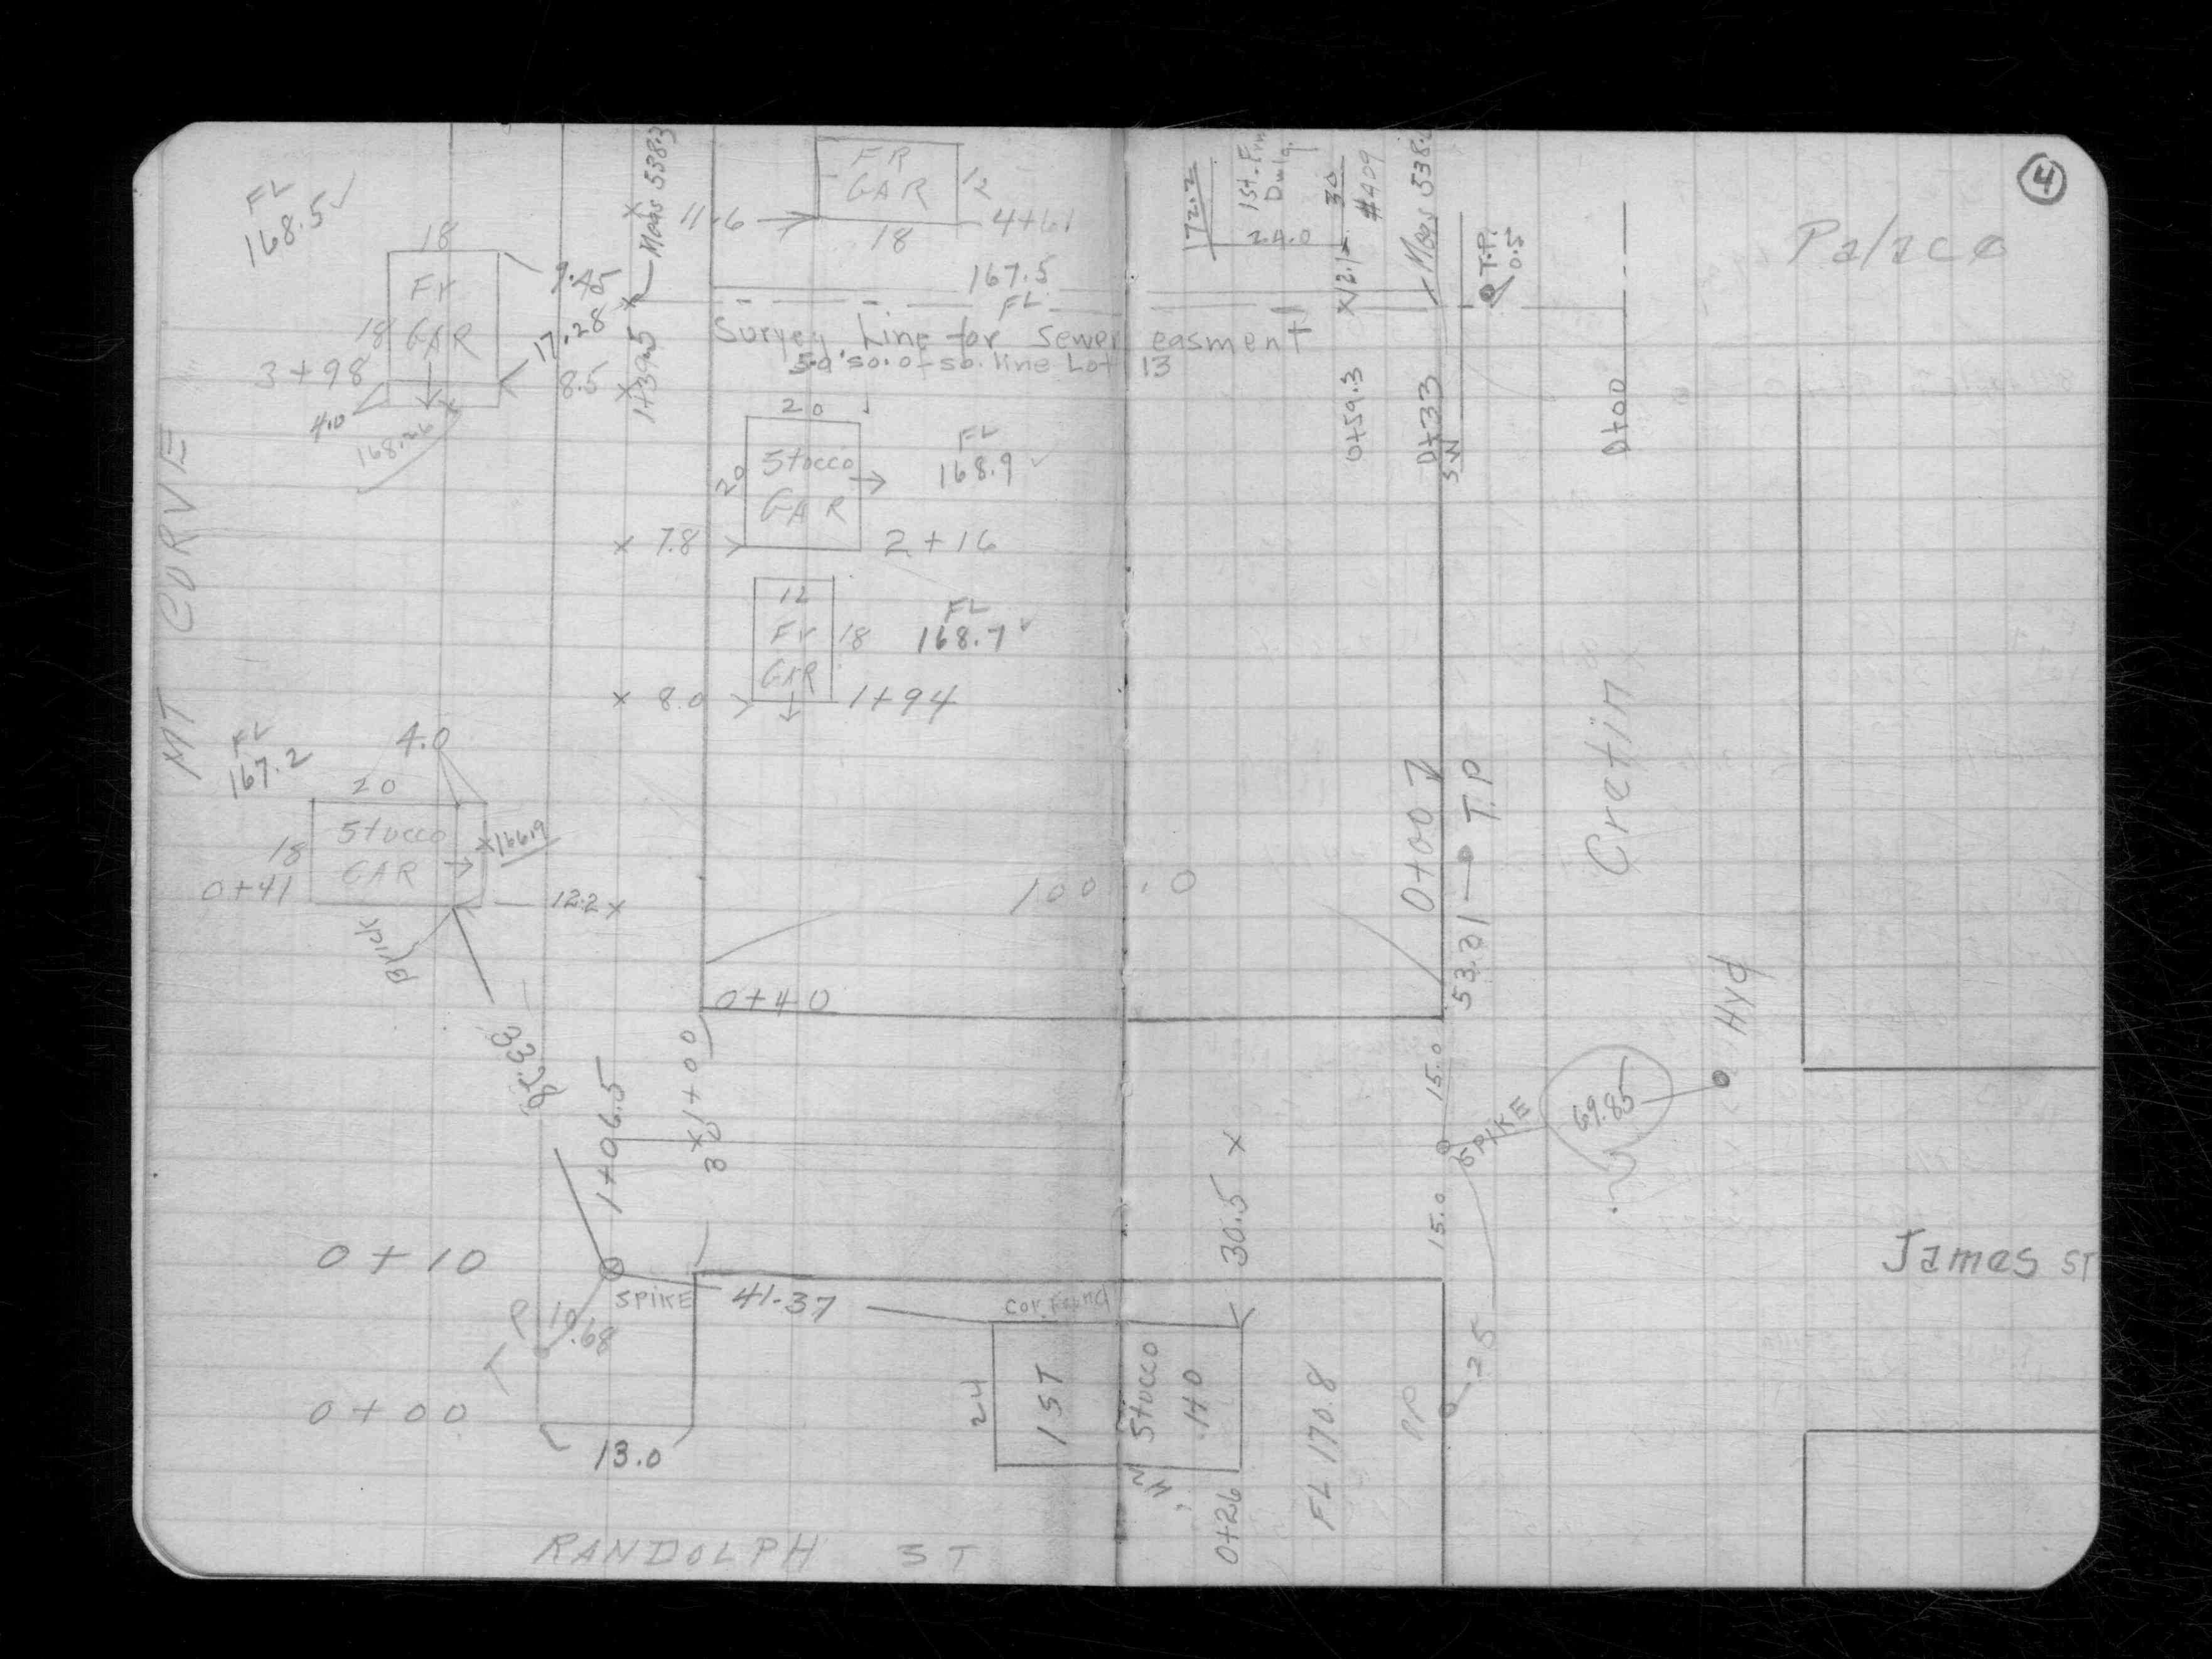 4
Palace
FL
168.5 ✓
18
Fr
GAR
18
3+98
4.0
168.26
9.45
17.28
8.5
Meas 538.3
1+39.5
11.6
FR
GAR
12
18
4+61
167.5
FL
Survey Line for Sewer easment
5.0' so. of so. line Lot 13
172.2
1St. Frm
Dwlg.
24.0
30
#409
12.1
Meas 538.
T.P.
0.5
0+59.3
0+33
SW
0+00
MT CURVE
20
20
Stucco
GAR
FL
168.9 ✓
7.8
2+16
12
Fr
GAR
18
FL
168.7 ✓
8.0
1+94
FL
167.2 ✓
4.0
20
Stucco
GAR
18
0+41
166.9
12.2
Brick
100.0
0+00
53.31
T.P
Cretin
Hyd
69.85
SPIKE
15.0
15.0
0+40
1+00
1+06.5
30.5
0+10
SPIKE
41.37
Cor. Found
10.68
T P
0+00
13.0
24
1 ST
Stucco
HO
0+26
FL 170.8
PP
.25
James ST
RANDOLPH ST